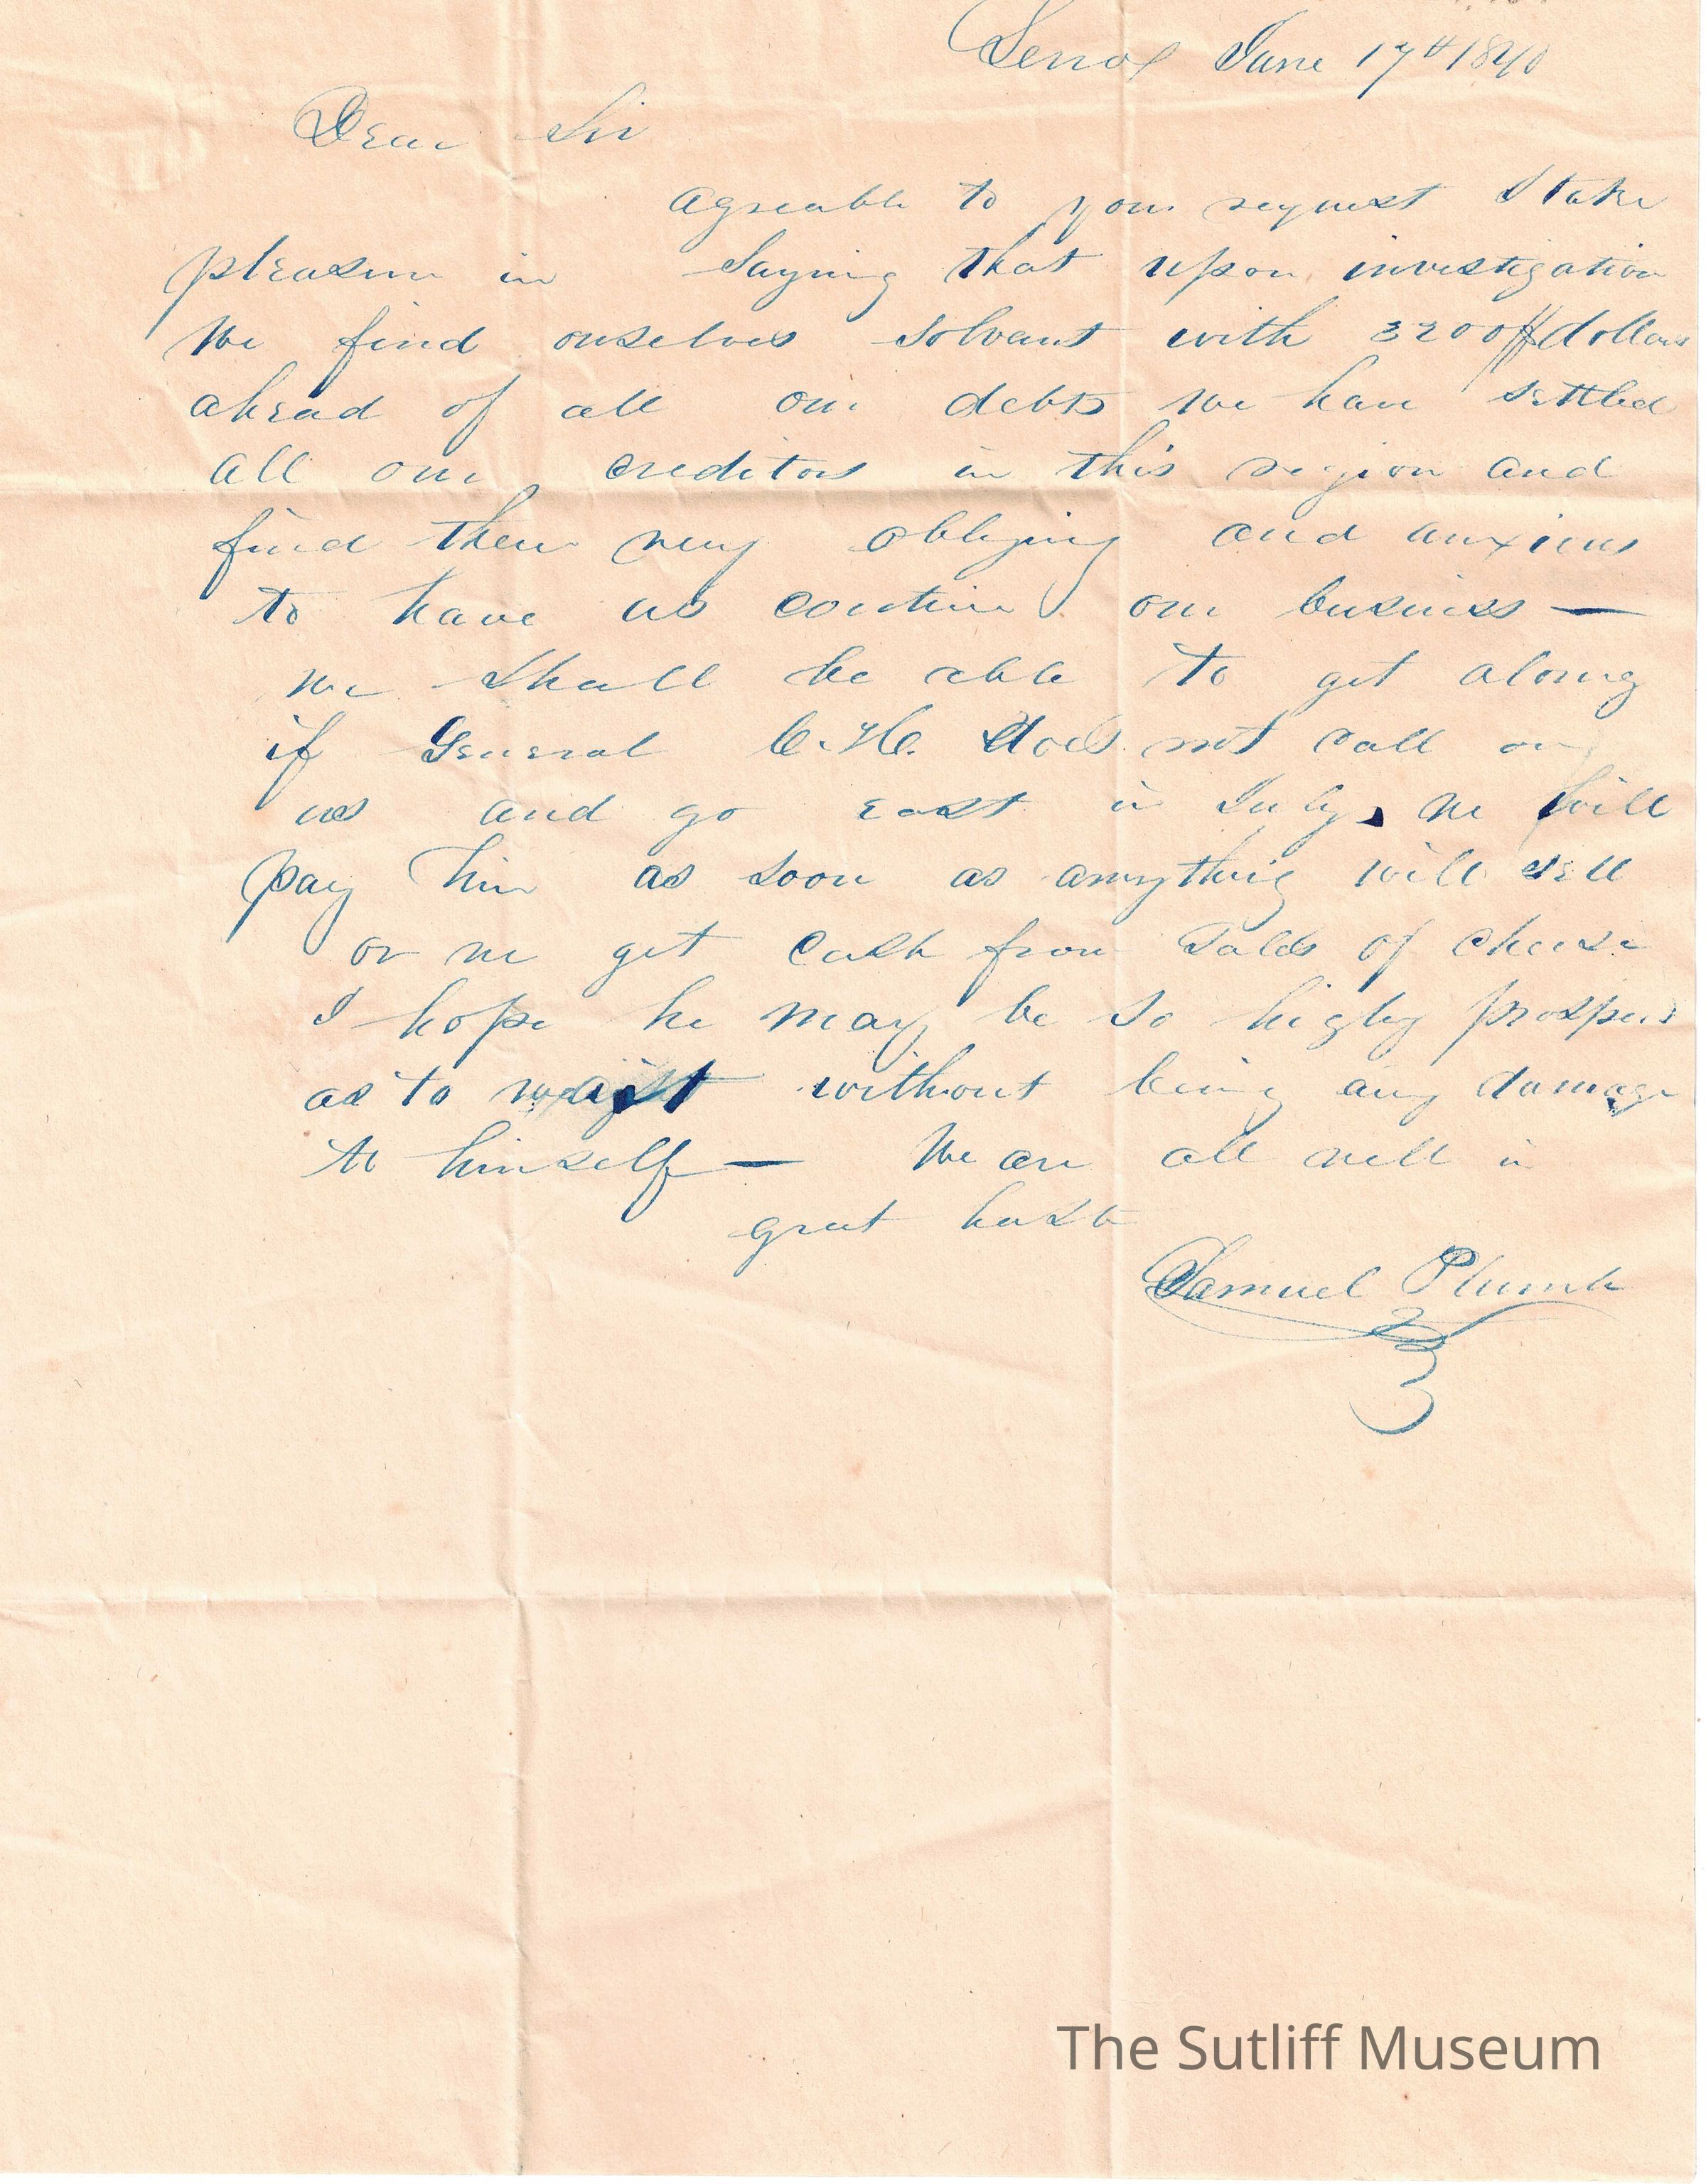 Lenox June 17th 1840
Dear Sir
agreable to your request I take
pleasure in saying that upon investigation
We find ourselves solvant with 3200 dollars
ahead of all our debts we have settled
all our creditors in this region and
find them very obliging and anxious
to have us continue our business —
we shall be able to get along
if General does not call on
us and go east in July, we will
pay him as soon as anything will sell
or we get cash from sales of cheese
I hope he may be so highly prospers
as to wait without being any damage
to himself — We are all well in
great haste
Samuel Plumb
The Sutliff Museum